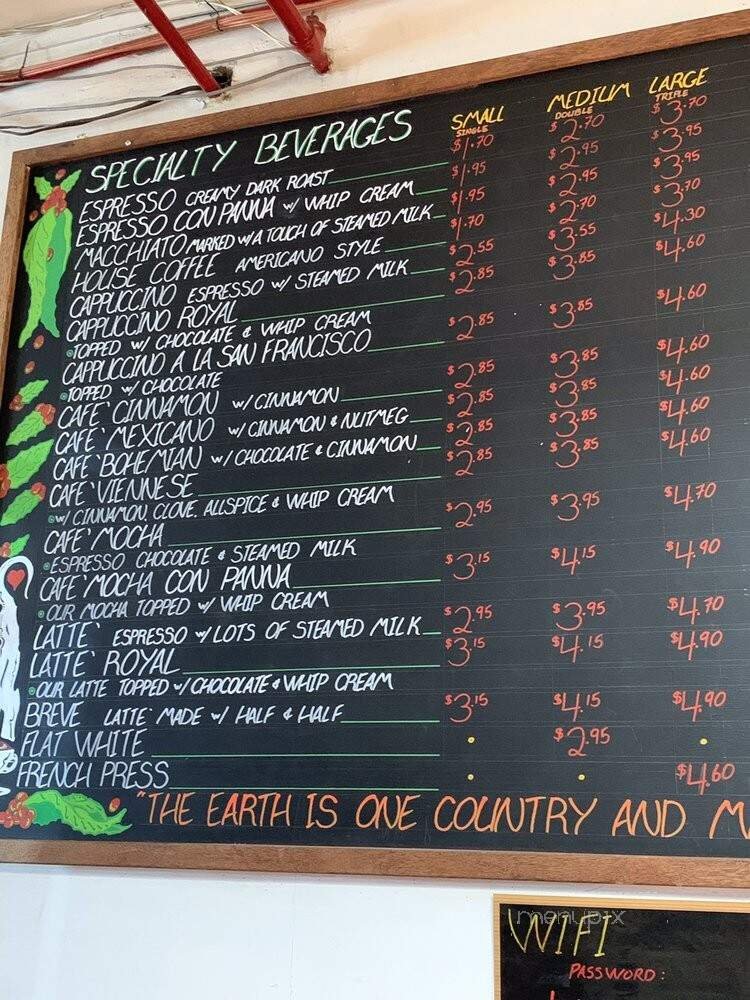 SPECIALTY BEVERAGES SMALL MEDIUM LARGE
SINGLE DOUBLE TRIPLE
ESPRESSO CREAMY DARK ROAST $1.70 $2.70 $3.70
ESPRESSO CON PANNA w/ WHIP CREAM $1.95 $2.95 $3.95
MACCHIATO MARKED w/A TOUCH OF STEAMED MILK $1.95 $2.95 $3.95
HOUSE COFFEE AMERICANO STYLE $1.70 $2.70 $3.70
CAPPUCCINO ESPRESSO w/ STEAMED MILK $2.55 $3.55 $4.30
CAPPUCCINO ROYAL $2.85 $3.85 $4.60
TOPPED w/ CHOCOLATE & WHIP CREAM
CAPPUCCINO A LA SAN FRANCISCO $2.85 $3.85 $4.60
TOPPED w/ CHOCOLATE
CAFE` CINNAMON w/ CINNAMON $2.85 $3.85 $4.60
CAFE` MEXICANO w/ CINNAMON & NUTMEG $2.85 $3.85 $4.60
CAFE` BOHEMIAN w/ CHOCOLATE & CINNAMON $2.85 $3.85 $4.60
CAFE` VIENNESE $2.85 $3.85 $4.60
w/ CINNAMON, CLOVE, ALLSPICE & WHIP CREAM
CAFE` MOCHA $2.95 $3.95 $4.70
ESPRESSO CHOCOLATE & STEAMED MILK
CAFE` MOCHA CON PANNA $3.15 $4.15 $4.90
OUR MOCHA TOPPED w/ WHIP CREAM
LATTE` ESPRESSO w/ LOTS OF STEAMED MILK $2.95 $3.95 $4.70
LATTE` ROYAL $3.15 $4.15 $4.90
OUR LATTE TOPPED w/ CHOCOLATE & WHIP CREAM
BREVE LATTE` MADE w/ HALF & HALF $3.15 $4.15 $4.90
FLAT WHITE • $2.95 •
FRENCH PRESS • • $4.60
"THE EARTH IS ONE COUNTRY AND M
menupix
WIFI
PASSWORD: